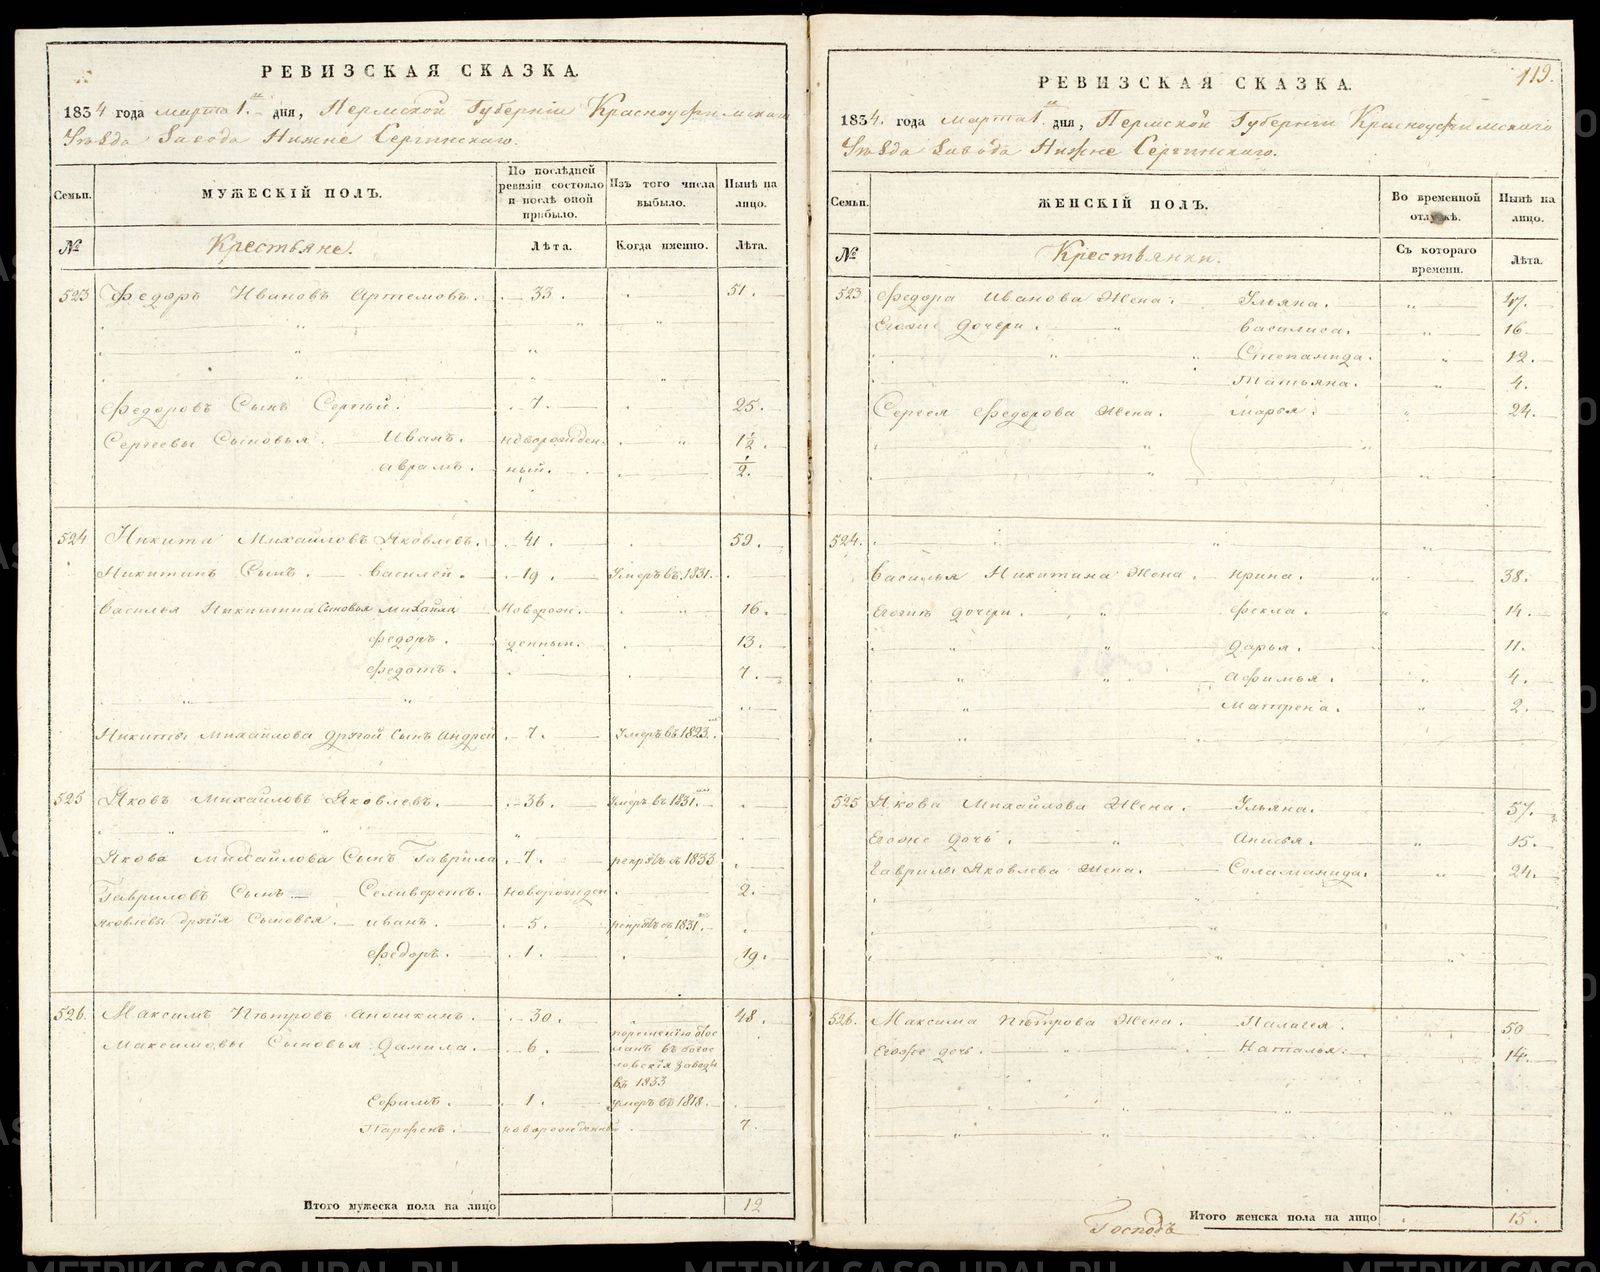 РЕВИЗСКАЯ СКАЗКА.
1834 года марта 1. дня, Пермской Губерніи Красноуфимскаго
Уѣзда Завода Нижне Сергинскаго.
Семьи. МУЖЕСКІЙ ПОЛЪ. По послѣдней ревизіи состояло и послѣ оной прибыло. Изъ того числа выбыло. Нынѣ на лицо.
№ Крестьяне. Лѣта. Когда именно. Лѣта.
523 Федоръ Ивановъ Артемовъ. 33. 51.
Федоровъ Сынъ Сергѣй. 7. 25.
Сергѣевы Сыновья. Иванъ. новорожден- 1½.
Аврамъ. ный. ½.
524 Никита Михайловъ Яковлевъ. 41. 59.
Никитинъ Сынъ. Василей. 19. Умеръ въ 1831.
Василья Никитина Сыновья Михайла Новорож- 16.
Федоръ. денныи. 13.
Федотъ. 7.
Никиты Михайлова другой Сынъ Андрей 7. Умеръ въ 1823.
525 Яковъ Михайловъ Яковлевъ. 36. Умеръ въ 1831.
Якова Михайлова Сынъ Гаврила 7. рекрутъ съ 1833
Гавриловъ Сынъ Селиверстъ. новорожден. 2.
Яковлевы другія Сыновья. Иванъ. 5. рекрутъ съ 1831.
Федоръ. 1. 19.
526. Максимъ Пѣтровъ Аношкинъ. 30. 48.
Максимовы Сыновья Данила. 6. порешенію отос
ланъ въ богос
ловскія заводы
въ 1833
Ефимъ. 1. Умеръ въ 1818.
Парфенъ. новорожденный 7.
Итого мужеска пола на лицо 12
119.
РЕВИЗСКАЯ СКАЗКА.
1834. года марта 1. дня, Пермской Губерніи Красноуфимскаго
Уѣзда Завода Нижне Сергинскаго.
Семьи. ЖЕНСКІЙ ПОЛЪ. Во временной отлучкѣ. Нынѣ на лицо.
№ Крестьянки. Съ котораго времени. Лѣта.
523 Федора Иванова Жена. Ульяна. 47.
Егоже Дочери. Василиса. 16
Степанида. 12.
Татьяна. 4.
Сергея Федорова Жена. Марья. 24.
524.
Василья Никитина Жена. Ирина. 38.
Егоже дочери. Фекла. 14.
Дарья. 11.
Афимья. 4.
Матрена. 2.
525 Якова Михайлова Жена. Ульяна. 57.
Егоже дочь. Анисья. 15.
Гаврилы Яковлева Жена. Соламанида. 24.
526. Максима Пѣтрова Жена. Палагея. 50
Егоже дочь. Наталья. 14.
Итого женска пола на лицо 15.
Господъ
METRIKI.GASO-URAL.RU
METRIKI.GASO-URAL.RU